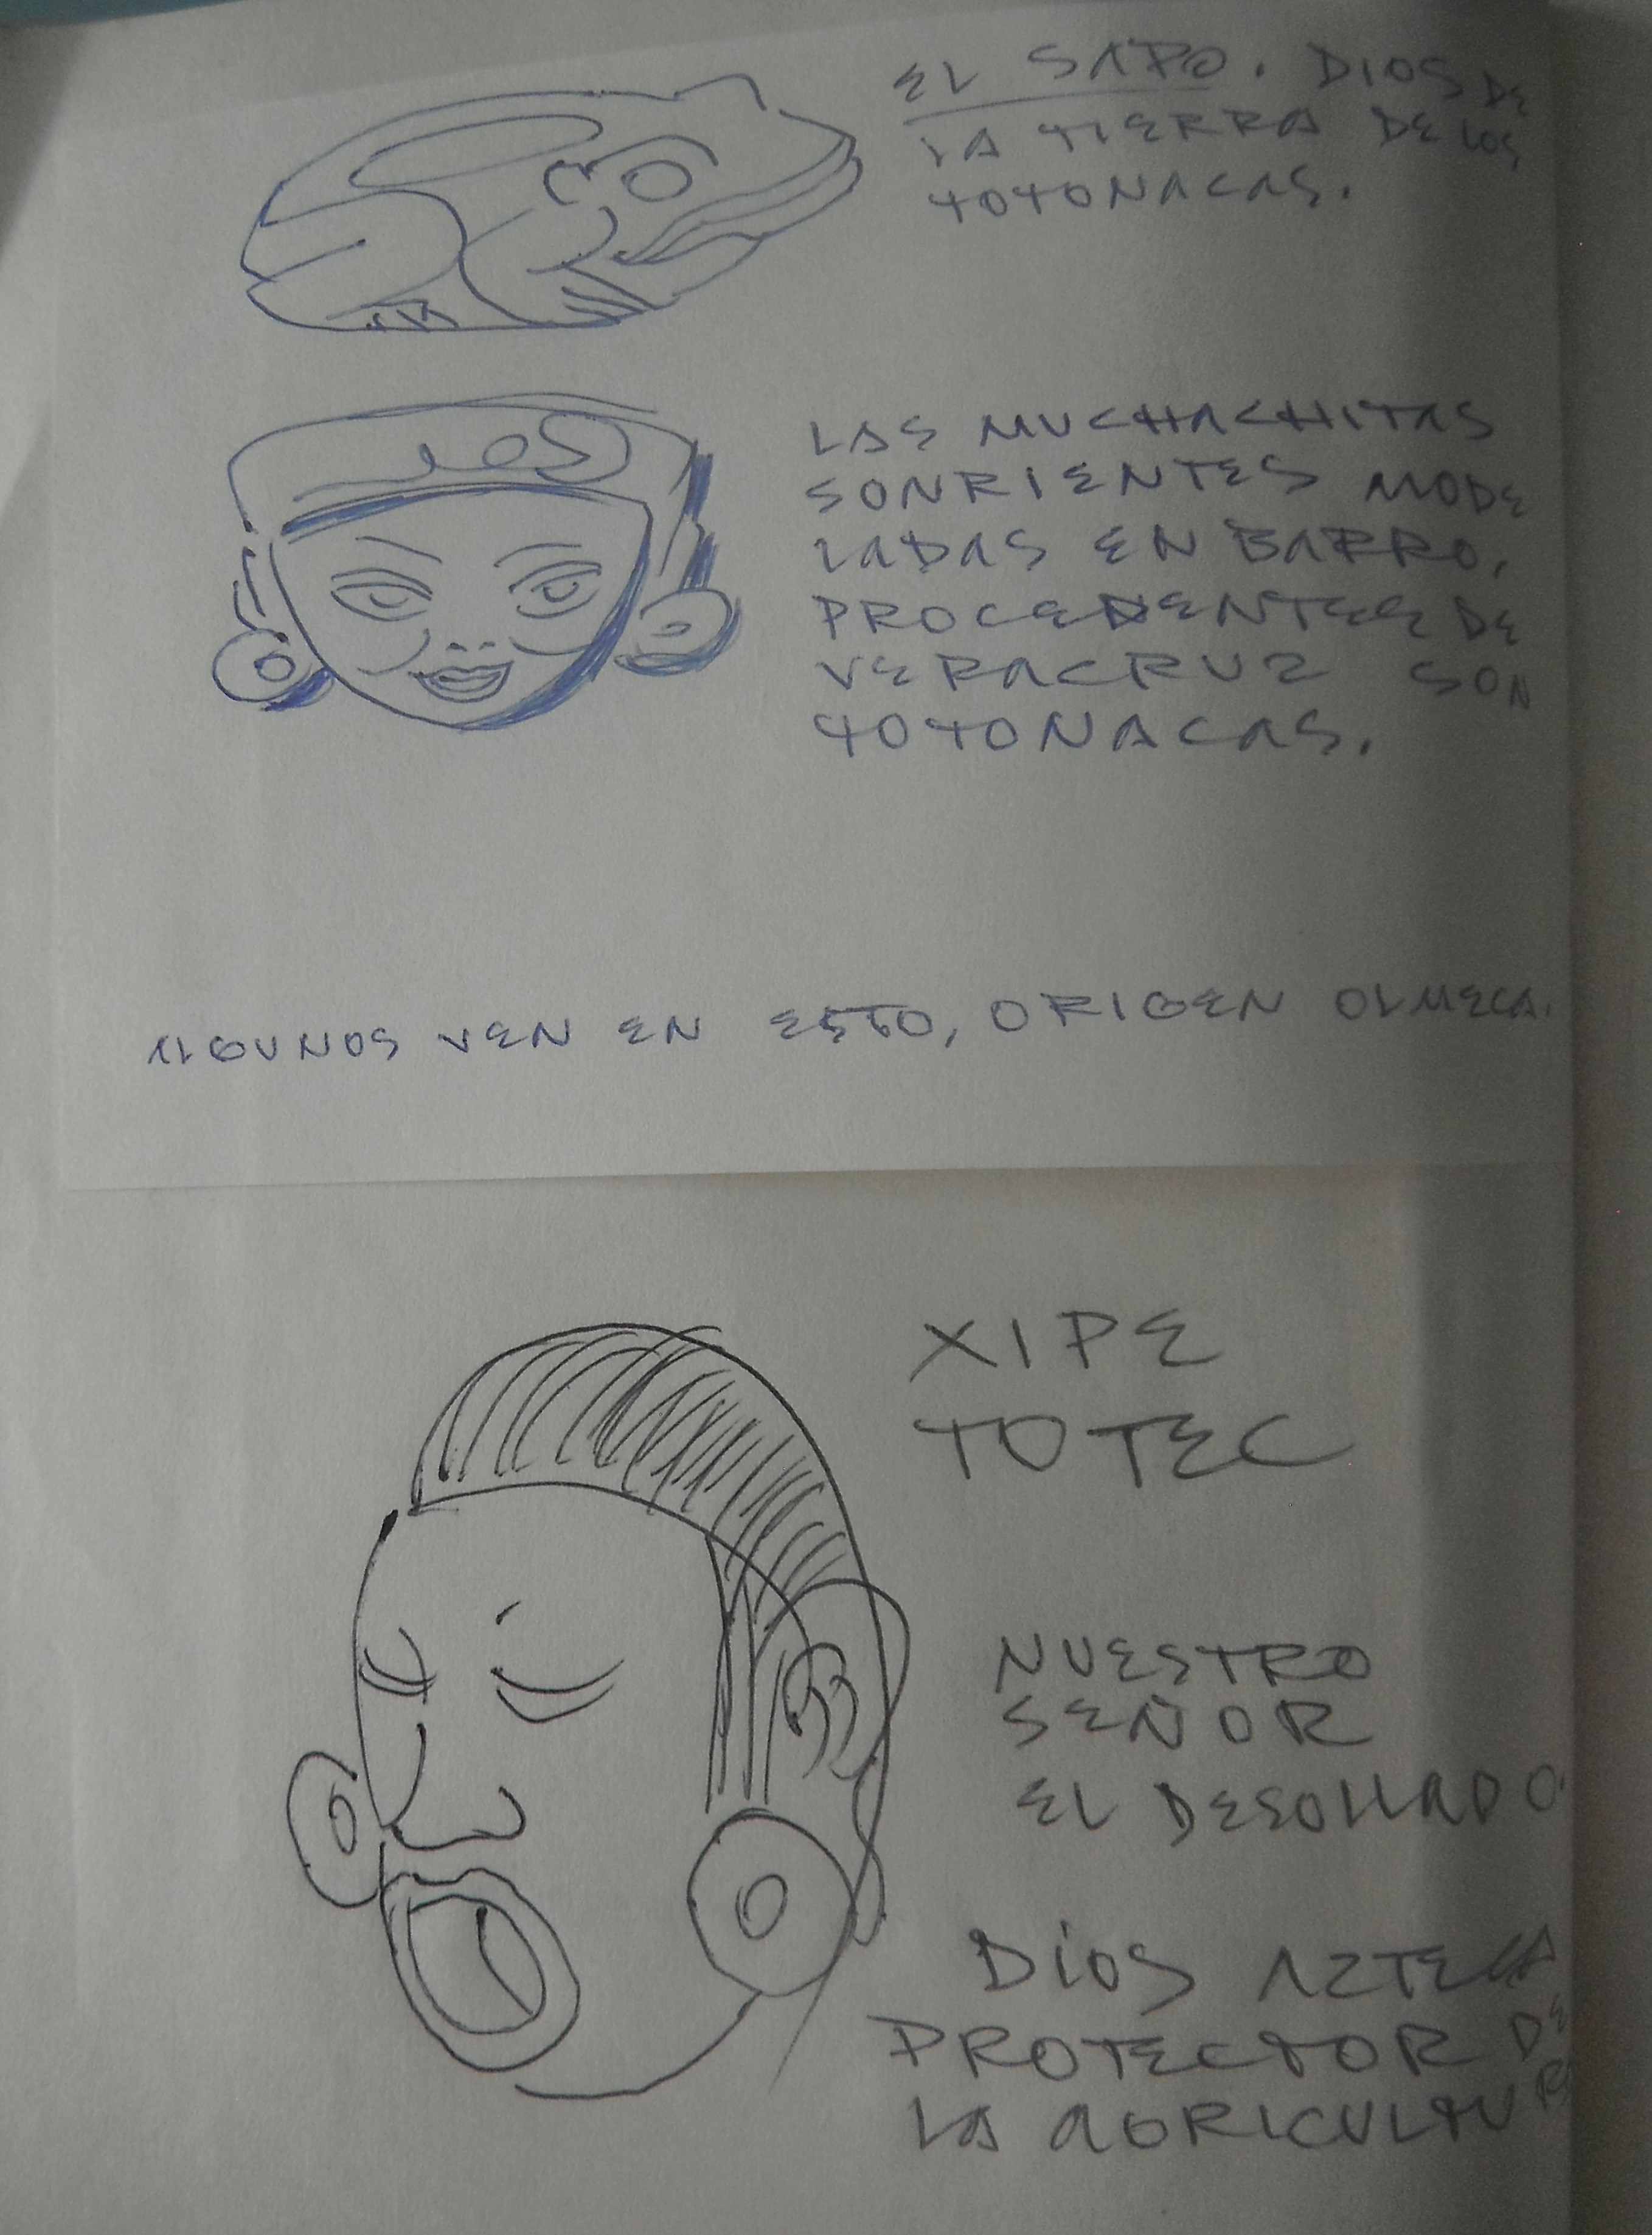 EL SAPO. DIOS DE
LA TIERRA DE LOS
TOTONACAS.
LAS MUCHACHITAS
SONRIENTES MODE
LADAS EN BARRO,
PROCEDENTES DE
VERACRUZ SON
TOTONACAS.
ALGUNOS VEN EN ESTO, ORIGEN OLMECA.
XIPE
TOTEC
NUESTRO
SEÑOR
EL DESOLLADO.
DIOS AZTECA
PROTECTOR DE
LA AGRICULTURA